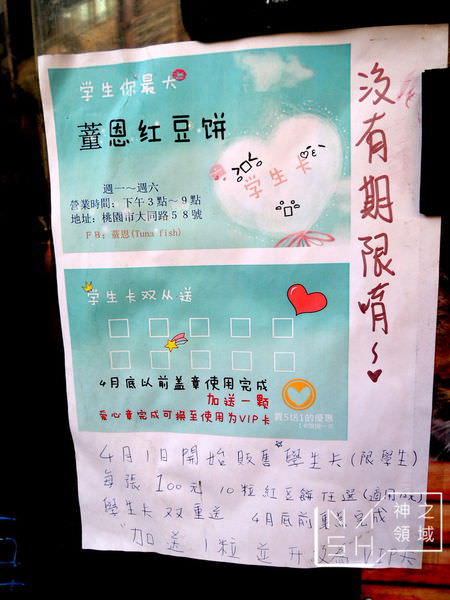 学生你最大
薑恩红豆饼
学生卡
週一～週六
營業時間: 下午3點～9點
地址: 桃園市大同路58號
FB: 薑恩(Tuna fish)
沒有期限唷~
学生卡双从送
4月底以前盖章使用完成
加送一颗
爱心章完成可换至使用为VIP卡
買5送1的優惠
4月1日開始販售學生卡(限學生)
每張100元 10粒紅豆餅任選
學生卡双重送 4月底前 完成
加送1粒並升級為VIP卡
神之
領域